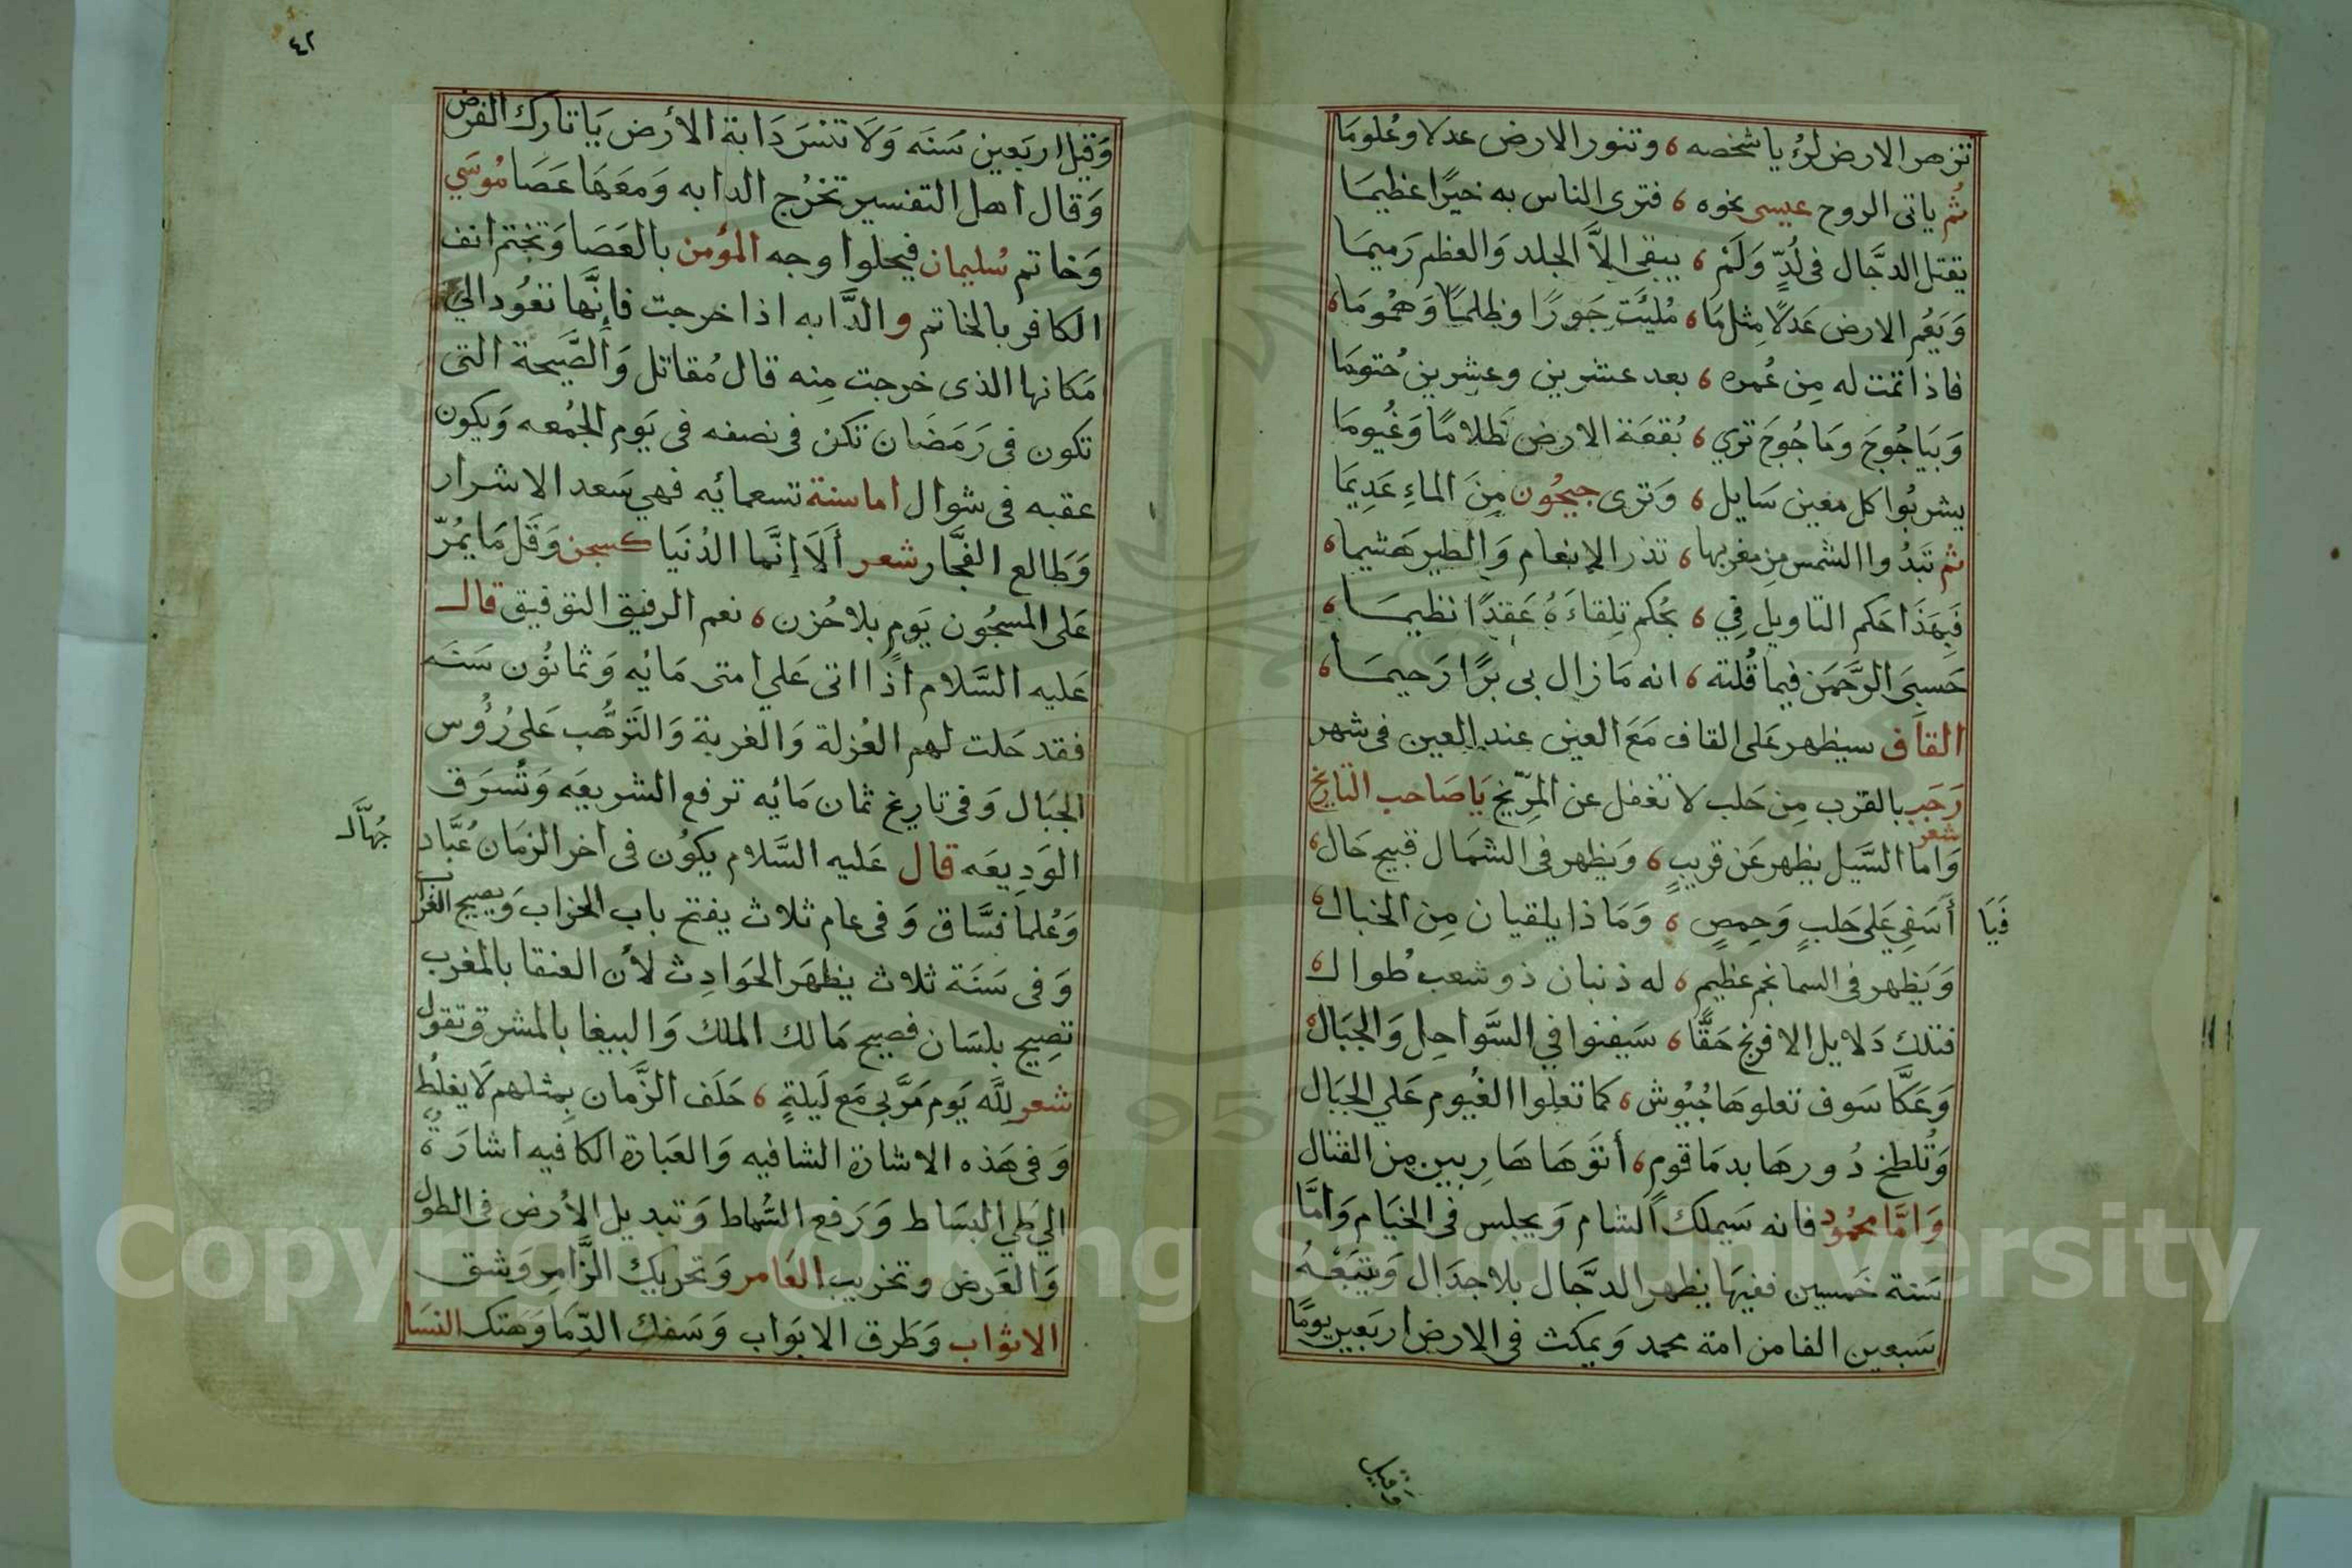 تزهر الارض لرؤيا شخصه ، وتنور الارض عدلا وعُلومَا
ثم ياتى الروح عيسى نحوه ، فترى الناس به خيرًا عظيمَا
يقتل الدجَّال فى لُدٍّ وَلَمْ ، يبقى الاَّ الجلد وَالعظم رَميمَا
وَيَعُم الارض عَدلاً مِثل مَا ، مُلئَت جَورًا وظلمًا وَهمُومَا ،
فاذا تمت له مِن عُمره ، بعد عشرين وعشرين حُتومَا
وَبيَاجُوجَ وَمَاجُوجَ تري ، بُقعَة الارض ظلامًا وَغُيومَا
يشربُوا كل معين سَايل ، وَترى جيحُون مِنَ الماءِ عَدِيمَا
ثم تَبدُوا الشمس مِن مغربها ، تذر الانعام وَالطير هَشيما ،
فَبِهَذَا حَكم التاويل فِي ، بحُكم تِلقاءَهُ عَقدًا نظيمَا ،
حَسبىَ الرَّحمَن فيما قُلته ، انه مَا زال بى برًّا رَحيمَا ،
القاف سيظهر عَلى القاف مَعَ العين عند العين فى شهر
رَجَب بالقرب مِن حَلب لا تغفل عن المرّيخ يَا صَاحب التاريخ
شعر
وَاما السَّيل يظهر عَن قريبٍ ، وَيظهر فى الشمَال قبيح حَال ،
فَيَا أسَفِي عَلى حَلبٍ وَحِمصٍ ، وَمَاذا يلقيان مِن الخبال ،
وَيَظهر فى السما نجم عظيم ، له ذنبان ذو شعب طوال ،
فتلك دَلايل الافرنج حَقًّا ، سَيفنوا في السَّواحِل وَالجبَال ،
وَعَكَّا سَوف تعلوهَا جُيُوش ، كما تعلوا الغُيوم عَلي الجبَال
وَتُلطخ دُورهَا بدمَا قوم ، أتوَهَا هَاربين مِن القتال
وَامَّا محمُود فانه سَيملك الشام وَيجلس فى الخيَام وَامَّا
سَنة خمسين ففيهَا يظهر الدجَّال بلا جدَال وَيتبَعهُ
سَبعين الفا من امة محمد وَيمكث فى الارض اربَعين يومًا
وقيل
٤٢
وَقيل اربَعين سَنَه وَلَا تنسَ دَابة الأرض يَا تارك الفرض
وَقال اهل التفسير تخرُج الدابه وَمعَهَا عَصَا مُوسَي
وَخاتم سُليمان فيجلوا وجه المؤمن بالعَصَا وَتختم انف
الكافر بالخاتم والدَّابه اذا خرجت فإنَّها تعُود الي
مَكانها الذى خرجت مِنه قال مُقاتل وَالصَّيحة التى
تكون فى رَمَضَان تكن فى نصفه فى يَوم الجُمعه وَيكون
عقبه فى شوال اما سنة تسعمائيه فهي سَعد الاشرار
وَطالع الفجَّار شعر أَلَا إنَّما الدُنيَا كسجن وَقَل مَا يمُرّ
عَلى المسجُون يَوم بلا حُزن ، نعم الرفيق التوفيق قال
عَليه السَّلام اذا اتى عَلي امتى مَائيه وَثمانُون سَنَه
فقد حَلت لهم العُزلة وَالغربة وَالترهُّب عَلىُ رُؤُس
الجبَال وَفى تاريخ ثمان مَائيه ترفع الشريعَه وَتُسرَق
الوَدِيعَه قال عَليه السَّلام يكُون فى اخر الزمَان عُبَّاد
جُهَّال
وَعُلما فسَّاق وَفى عام ثلاث يفتح باب الخراب وَيصيح الغراب
وَفى سَنَة ثلاث يظهَر الحَوادِث لأن العنقا بالمغرب
تصِيح بلسَان فصيح مَالك الملك وَالببغا بالمشرق تقول
شعر للَّه يَوم مَرَّ بي مَع لَيلةٍ ، حَلَف الزَّمان بِمثلهم لَا يغلطُ
وَفى هَذه الاشارة الشافيه وَالعبَارة الكافيه اشارَةٌ
الي طي البسَاط وَرَفع السِّماط وَتبديل الأرض فى الطول
وَالعَرض وتخريب العَامر وَتحريك الزَّامر وَشق
الاثواب وَطَرق الابوَاب وَسَفك الدّمَا وَهَتك النسَا
Copyright © King Saud University